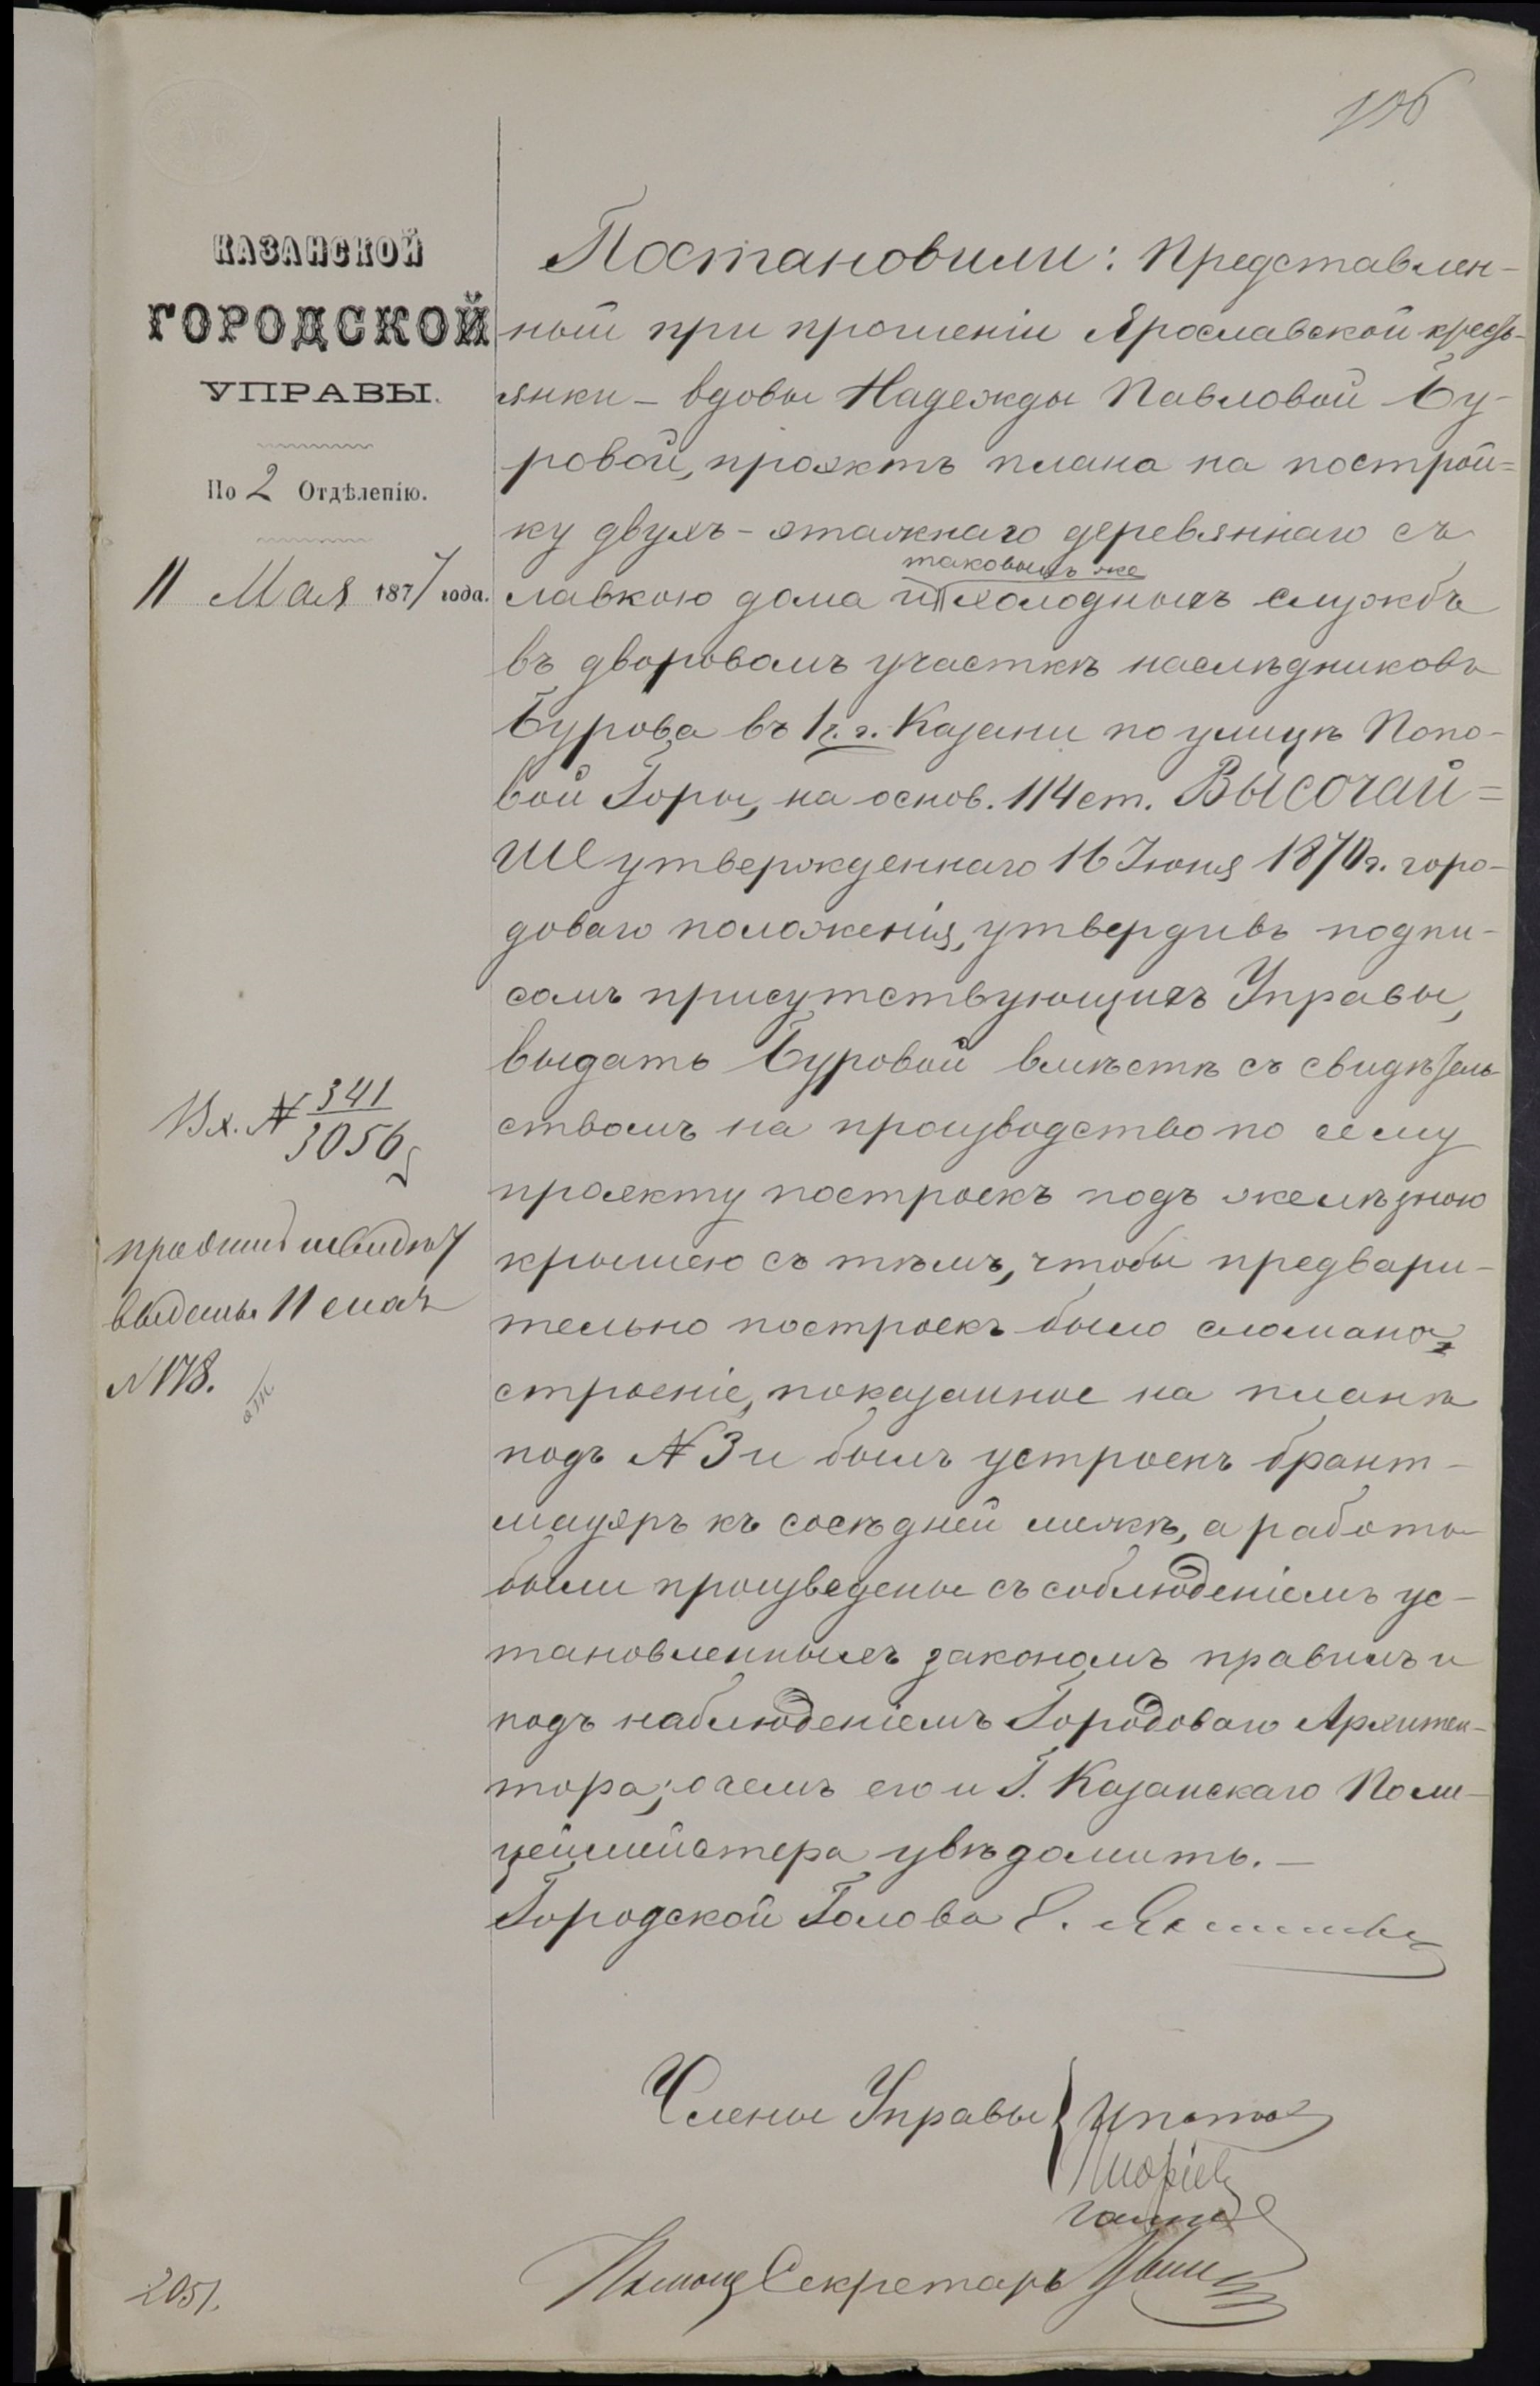 106
КАЗАНСКОЙ
ГОРОДСКОЙ
УПРАВЫ.
По 2 Отдѣленію.
11 Мая 1877 года.
Вх. № 341
3056
выданы 11 мая
№ 178.
2051.
Постановили: Представлен-
ный при прошеніи Ярославской кресть-
янки - вдовы Надежды Павловой Бу-
ровой, проэктъ плана на построй=
ку двухъ-этажнаго деревяннаго съ
лавкою дома и таковыхъ же холодныхъ службъ
въ дворовомъ участкѣ наслѣдниковъ
Бурова въ 1 ч. г. Казани по улицѣ Попо-
вой Горы, на основ. 114 ст. ВЫСОЧАЙ=
ШЕ утвержденнаго 16 Іюня 1870 г. горо-
доваго положенія, утвердивъ подпи-
сомъ присутствующихъ Управы,
выдать Буровой вмѣстѣ съ свидѣтель-
ствомъ на производство по сему
проэкту построекъ подъ желѣзною
крышею съ тѣмъ, чтобы предвари-
тельно построекъ было сломано
строеніе, показанное на планѣ
подъ № 3 и былъ устроенъ брант-
мауэръ къ сосѣдней межѣ, а работы
были произведены съ соблюденіемъ ус-
тановленныхъ закономъ правилъ и
подъ наблюденіемъ Городоваго Архитек-
тора; о чемъ его и Г. Казанскаго Поли-
цеймейстера увѣдомить. —
Городской Голова Е.
Члены Управы
Секретарь